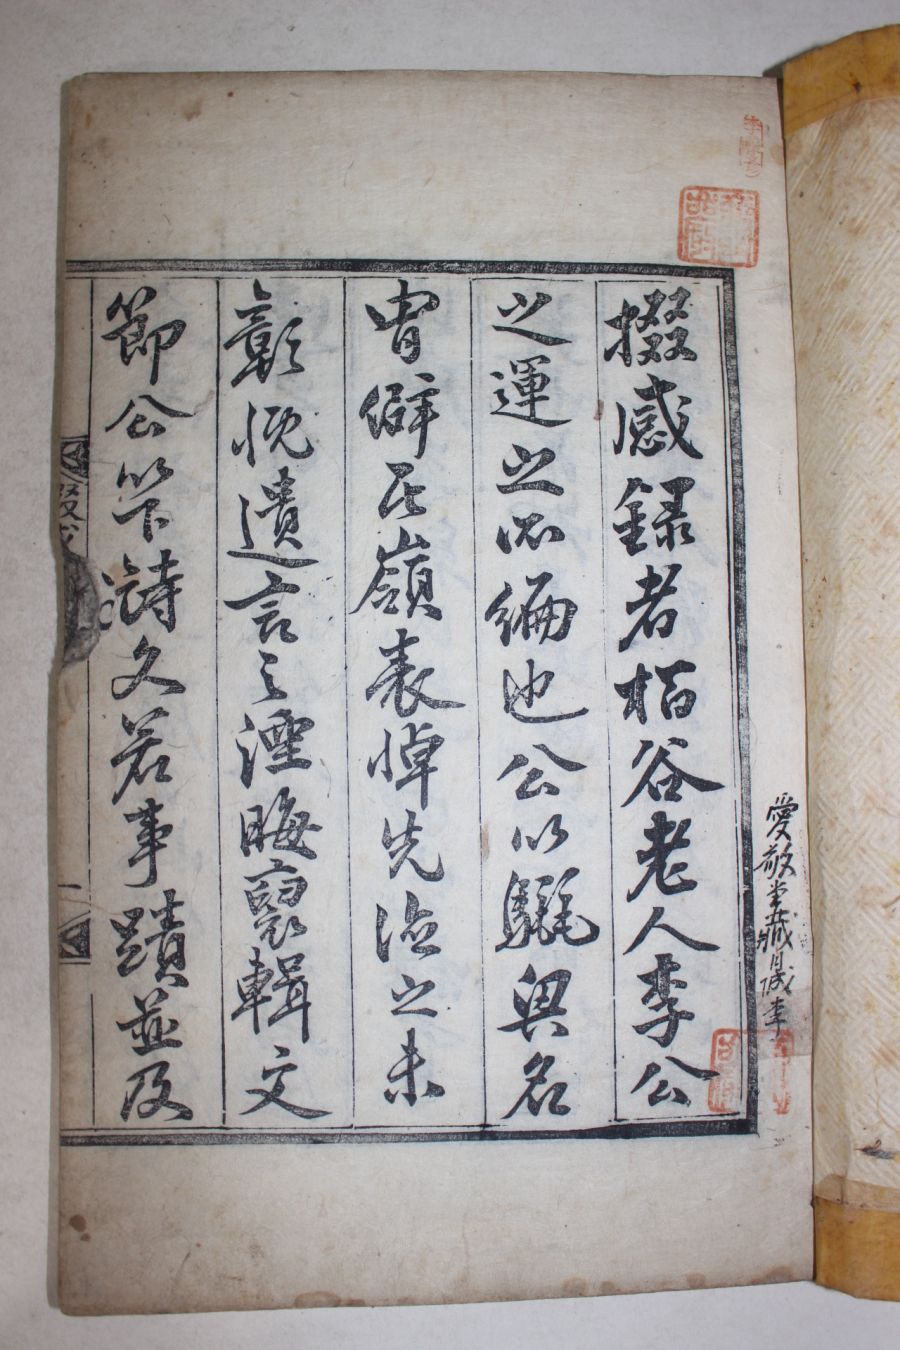 掇感錄者栢谷老人李公
之運之所編也公以驪興名
胄僻居嶺表悼先德之未
彰慨遺言之湮晦裒輯文
節公以下詩文若事蹟並及
掇感
一
愛敬堂藏